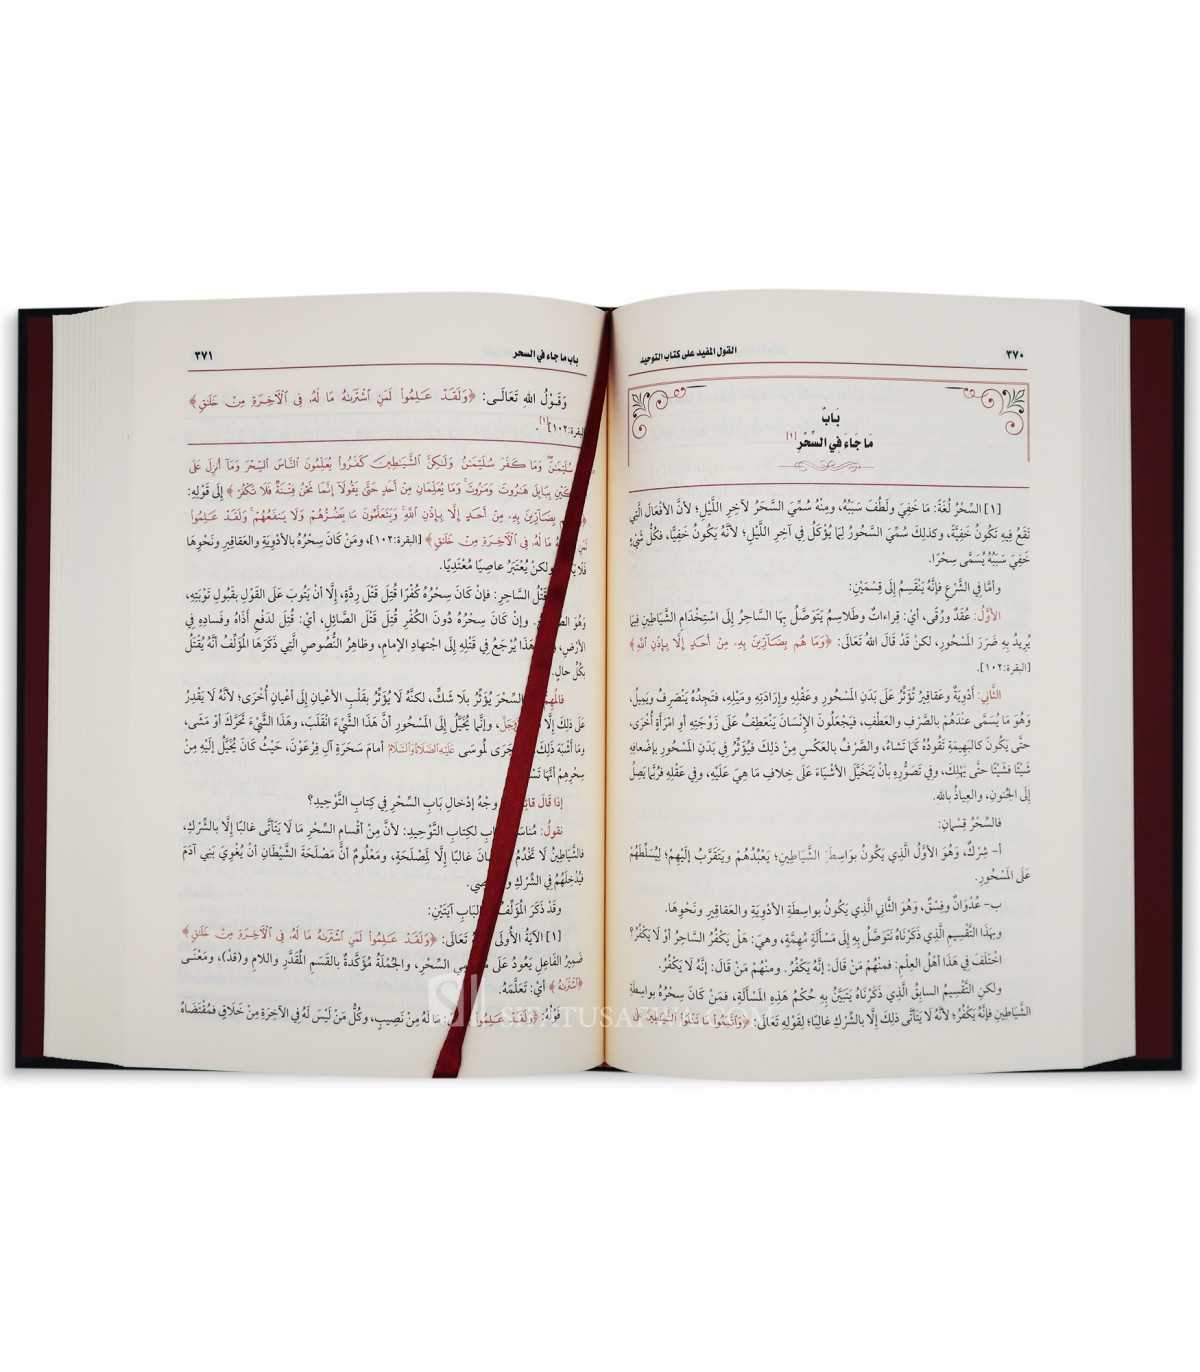 ٣٧٠
القول المفيد على كتاب التوحيد
بَابٌ
مَا جَاءَ فِي السِّحْرِ [١]
[١] السِّحْرُ لُغَةً: مَا خَفِيَ ولَطُفَ سَبَبُهُ، ومِنْهُ سُمِّيَ السَّحَرُ لآخِرِ اللَّيْلِ؛ لأنَّ الأفْعَالَ الَّتِي
تَقَعُ فِيهِ تَكُونُ خَفِيَّةً، وكذلِكَ سُمِّيَ السَّحُورُ لِمَا يُؤْكَلُ فِي آخِرِ اللَّيْلِ؛ لأنَّهُ يَكُونُ خَفِيًّا، فكُلُّ شَيْءٍ
خَفِيَ سَبَبُهُ يُسَمَّى سِحْرًا.
وأمَّا فِي الشَّرْعِ فإنَّهُ يَنْقَسِمُ إلَى قِسْمَيْنِ:
الأوَّلُ: عُقَدٌ ورُقًى، أيْ: قِراءَاتٌ وطَلَاسِمُ يَتَوَصَّلُ بِهَا السَّاحِرُ إلَى اسْتِخْدَامِ الشَّيَاطِينِ فِيمَا
يُرِيدُ بِهِ ضَرَرَ المَسْحُورِ، لكنْ قَدْ قَالَ اللهُ تَعَالَى: ﴿وَمَا هُم بِضَآرِّينَ بِهِۦ مِنْ أَحَدٍ إِلَّا بِإِذْنِ ٱللَّهِ﴾
[البقرة:١٠٢].
الثَّانِي: أدْوِيَةٌ وعَقَاقِيرُ تُؤَثِّرُ عَلَى بَدَنِ المَسْحُورِ وعَقْلِهِ وإرَادَتِهِ ومَيْلِهِ، فتَجِدُهُ يَنْصَرِفُ ويَمِيلُ،
وهُوَ مَا يُسَمَّى عنْدَهُمْ بالصَّرْفِ والعَطْفِ، فيَجْعَلُونَ الإنْسَانَ يَنْعَطِفُ عَلَى زَوْجَتِهِ أوِ امْرَأَةٍ أُخْرَى،
حتَّى يَكُونَ كالبَهِيمَةِ تَقُودُهُ كَمَا تَشَاءُ، والصَّرْفُ بالعَكْسِ مِنْ ذلِكَ فيُؤَثِّرُ فِي بَدَنِ المَسْحُورِ بإضْعَافِهِ
شَيْئًا فشَيْئًا حتَّى يَهْلِكَ، وفِي تَصَوُّرِهِ بأنْ يَتَخَيَّلَ الأشْيَاءَ عَلَى خِلافِ مَا هِيَ عَلَيْهِ، وفِي عَقْلِهِ فرُبَّمَا يَصِلُ
إلَى الجُنُونِ، والعِيَاذُ باللهِ.
فالسِّحْرُ قِسْمَانِ:
أ- شِرْكٌ، وهُوَ الأوَّلُ الَّذِي يَكُونُ بوَاسِطَةِ الشَّيَاطِينِ؛ يَعْبُدُهُمْ ويَتَقَرَّبُ إلَيْهِمْ؛ لِيُسَلِّطَهُمْ
عَلَى المَسْحُورِ.
ب- عُدْوَانٌ وفِسْقٌ، وهُوَ الثَّانِي الَّذِي يَكُونُ بواسِطَةِ الأدْوِيَةِ والعَقَاقِيرِ ونَحْوِهَا.
وبِهذَا التَّقْسِيمِ الَّذِي ذَكَرْنَاهُ نَتَوَصَّلُ بِهِ إلَى مَسْأَلَةٍ مُهِمَّةٍ، وهِيَ: هَلْ يَكْفُرُ السَّاحِرُ أوْ لَا يَكْفُرُ؟
اخْتَلَفَ فِي هذَا أهْلُ العِلْمِ: فمِنْهُمْ مَنْ قَالَ: إنَّهُ يَكْفُرُ. ومنْهُمْ مَنْ قَالَ: إنَّهُ لَا يَكْفُرُ.
ولكنِ التَّقْسِيمُ السابِقُ الَّذِي ذَكَرْنَاهُ يَتَبَيَّنُ بِهِ حُكْمُ هَذِهِ المَسْأَلَةِ، فمَنْ كَانَ سِحْرُهُ بواسِطَةِ
الشَّيَاطِينِ فإنَّهُ يَكْفُرُ؛ لأنَّهُ لَا يَتَأَتَّى ذَلِكَ إلَّا بالشِّرْكِ غالِبًا؛ لِقَوْلِهِ تَعَالَى: ﴿وَٱتَّبَعُوا۟ مَا تَتْلُوا۟ ٱلشَّيَـٰطِينُ عَلَىٰ
باب ما جاء في السحر
٣٧١
وَقَـوْلُ اللهِ تَعَالَـى: ﴿وَلَقَـدْ عَـلِمُوا۟ لَمَنِ ٱشْتَرَىٰهُ مَا لَهُۥ فِى ٱلْـَٔاخِـرَةِ مِنْ خَلَـٰقٍ﴾
[البقرة:١٠٢] [١].
سُلَيْمَـٰنَ ۖ وَمَا كَفَرَ سُلَيْمَـٰنُ وَلَـٰكِنَّ ٱلشَّيَـٰطِينَ كَفَرُوا۟ يُعَلِّمُونَ ٱلنَّاسَ ٱلسِّحْرَ وَمَآ أُنزِلَ عَلَى
بِبَابِلَ هَـٰرُوتَ وَمَـٰرُوتَ ۚ وَمَا يُعَلِّمَانِ مِنْ أَحَدٍ حَتَّىٰ يَقُولَآ إِنَّمَا نَحْنُ فِتْنَةٌ فَلَا تَكْفُرْ﴾ إلَى قَوْلِهِ:
بِضَآرِّينَ بِهِۦ مِنْ أَحَدٍ إِلَّا بِإِذْنِ ٱللَّهِ ۚ وَيَتَعَلَّمُونَ مَا يَضُرُّهُمْ وَلَا يَنفَعُهُمْ ۚ وَلَقَدْ عَلِمُوا۟
لَمَنِ مَا لَهُۥ فِى ٱلْـَٔاخِرَةِ مِنْ خَلَـٰقٍ﴾ [البقرة:١٠٢]، ومَنْ كَانَ سِحْرُهُ بالأدْوِيَةِ والعَقَاقِيرِ ونَحْوِهَا
فَلَا ولكنْ يُعْتَبَرُ عاصِيًا مُعْتَدِيًا.
قَتْلُ السَّاحِرِ: فإنْ كَانَ سِحْرُهُ كُفْرًا قُتِلَ قَتْلَ رِدَّةٍ، إلَّا أنْ يَتُوبَ عَلَى القَوْلِ بقَبُولِ تَوْبَتِهِ،
وهُوَ وإنْ كَانَ سِحْرُهُ دُونَ الكُفْرِ قُتِلَ قَتْلَ الصَّائِلِ، أيْ: قُتِلَ لدَفْعِ أذَاهُ وفَسادِهِ فِي
الأرْضِ، هَذَا يُرْجَعُ فِي قَتْلِهِ إلَى اجْتِهادِ الإمامِ، وظَاهِرُ النُّصُوصِ الَّتِي ذَكَرَهَا المُؤَلِّفُ أنَّهُ يُقْتَلُ
بكُلِّ حالٍ.
السِّحْرَ يُؤَثِّرُ بلا شَكٍّ، لكنَّهُ لَا يُؤَثِّرُ بقَلْبِ الأعْيانِ إلَى أعْيانٍ أُخْرَى؛ لأنَّهُ لَا يَقْدِرُ
عَلَى ذلِكَ إلَّا وإنَّمَا يُخَيَّلُ إلَى المَسْحُورِ أنَّ هَذَا الشَّيْءَ انْقَلَبَ، وهَذَا الشَّيْءَ تَحَرَّكَ أوْ مَشَى،
ومَا أشْبَهَ ذَلِكَ جَرَى لِمُوسَى عَلَيْهِ الصَّلَاةُ وَالسَّلَامُ أمامَ سَحَرَةِ آلِ فِرْعَوْنَ، حَيْثُ كَانَ يُخَيَّلُ إلَيْهِ مِنْ
سِحْرِهِمْ أنَّهَا
إذَا قَالَ وجْهُ إدْخالِ بَابِ السِّحْرِ فِي كِتابِ التَّوْحِيدِ؟
نقولُ: لكِتابِ التَّوْحِيدِ: لأنَّ مِنْ أقْسامِ السِّحْرِ مَا لَا يَتَأَتَّى غالبًا إلَّا بالشِّرْكِ،
فالشَّيَاطِينُ لَا تَخْدُمُ غالبًا إلَّا لِمَصْلَحَةٍ، ومَعْلُومٌ أنَّ مَصْلَحَةَ الشَّيْطَانِ أنْ يُغْوِيَ بَنِي آدَمَ
فيُدْخِلَهُمْ فِي الشِّرْكِ
وقَدْ ذَكَرَ المُؤَلِّفُ البَابِ آيَتَيْنِ:
[١] الآيَةُ الأُولَى تَعَالَى: ﴿وَلَقَـدْ عَـلِمُوا۟ لَمَنِ ٱشْتَرَىٰهُ مَا لَهُۥ فِى ٱلْـَٔاخِـرَةِ مِنْ خَلَـٰقٍ﴾
ضَمِيرُ الفَاعِلِ يَعُودُ عَلَى السِّحْرِ، والجُمْلَةُ مُؤَكَّدَةٌ بالقَسَمِ المُقَدَّرِ واللامِ و(قَدْ)، ومَعْنَى
﴿ٱشْتَرَىٰهُ﴾ أيْ: تَعَلَّمَهُ.
قَوْلُهُ: مَا لَهُ مِنْ نَصِيبٍ، وكُلُّ مَنْ لَيْسَ لَهُ فِي الآخِرَةِ مِنْ خَلَاقٍ فمُقْتَضَاهُ